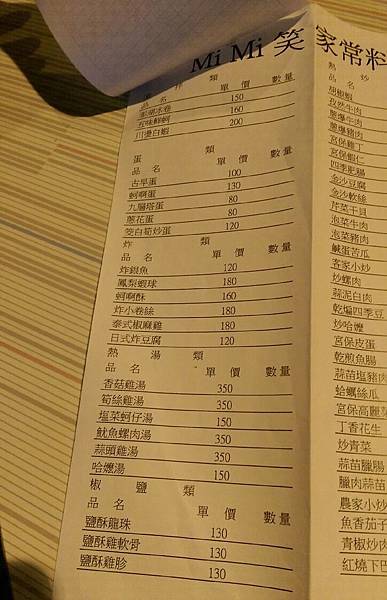 Mi Mi 笑 家常料
類
品名 單價 數量
涼筍冰卷 150
五味鮮蚵 160
川燙白蝦 200
蛋 類
品名 單價 數量
古早蛋 100
蚵啊蛋 130
九層塔蛋 80
蔥花蛋 80
茭白筍炒蛋 120
炸 類
品名 單價 數量
炸銀魚 120
鳳梨蝦球 180
蚵啊酥 160
炸小卷絲 180
泰式椒麻雞 180
日式炸豆腐 120
熱湯類
品名 單價 數量
香菇雞湯 350
筍絲雞湯 350
塩菜蚵仔湯 150
魷魚螺肉湯 350
蒜頭雞湯 350
哈嬤湯 150
椒鹽類
品名 單價 數量
鹽酥龍珠 130
鹽酥雞軟骨 130
鹽酥雞胗 130
熱 炒
品名
胡椒蝦
孜然牛肉
蔥爆牛肉
蔥爆豬肉
宮保雞丁
宮保蝦仁
四季肥腸
金沙豆腐
金沙軟絲
芹菜干貝
泡菜牛肉
泡菜豬肉
鹹蛋苦瓜
客家小炒
炒螺肉
蒜泥白肉
乾煸四季豆
炒哈嬤
宮保皮蛋
乾煎魚腸
蒜苗塩豬肉
蛤蠣絲瓜
宮保高麗菜
丁香花生
炒青菜
蒜苗臘腸
臘肉蒜苗
農家小炒
魚香茄子
青椒炒肉
紅燒下巴